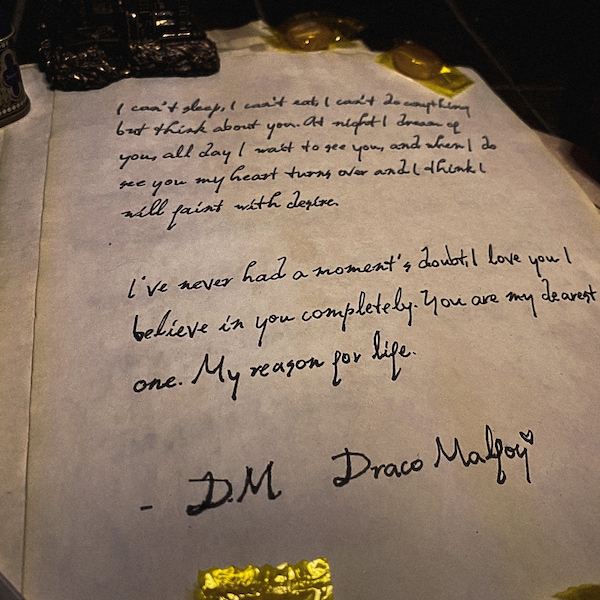 I can't sleep, I can't eat, I can't do anything
but think about you. At night I dream of
you, all day I wait to see you, and when I do
see you my heart turns over and I think I
will faint with desire.
I've never had a moment's doubt, I love you I
believe in you completely. You are my dearest
one. My reason for life.
- D.M Draco Malfoy